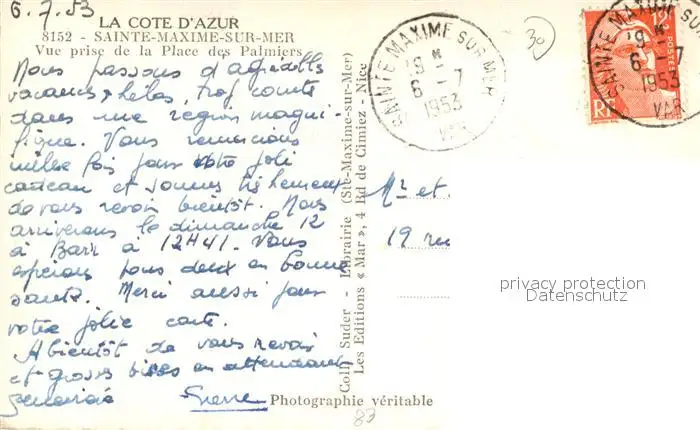 6.7.53
LA COTE D'AZUR
8152 - SAINTE-MAXIME-SUR-MER
Vue prise de la Place des Palmiers
Nous passons d'agréables
vacances hélas, trop courte
dans une region magni-
fique. Vous remercions
mille fois pour votre joli
cadeau et sommes très heureux
de vous revoir bientôt. Nous
arriverons le dimanche 12
à Barr à 12H41. Vous
espérons tous deux en bonne
santé. Merci aussi pour
votre jolie carte.
A bientôt de vous revoir
et grosses bises en attendant
Pierre
Photographie véritable
83
Coll. Suder - Librairie (Ste-Maxime-sur-Mer)
Les Editions « Mar », 4 Bd de Cimiez - Nice
SAINTE MAXIME SUR MER
9 *
6 - 7
1953
VAR
30
12F
POSTES
RF
SAINTE MAXIME SUR MER
9 *
6 - 7
1953
VAR
Mr et
19 rue
privacy protection
Datenschutz